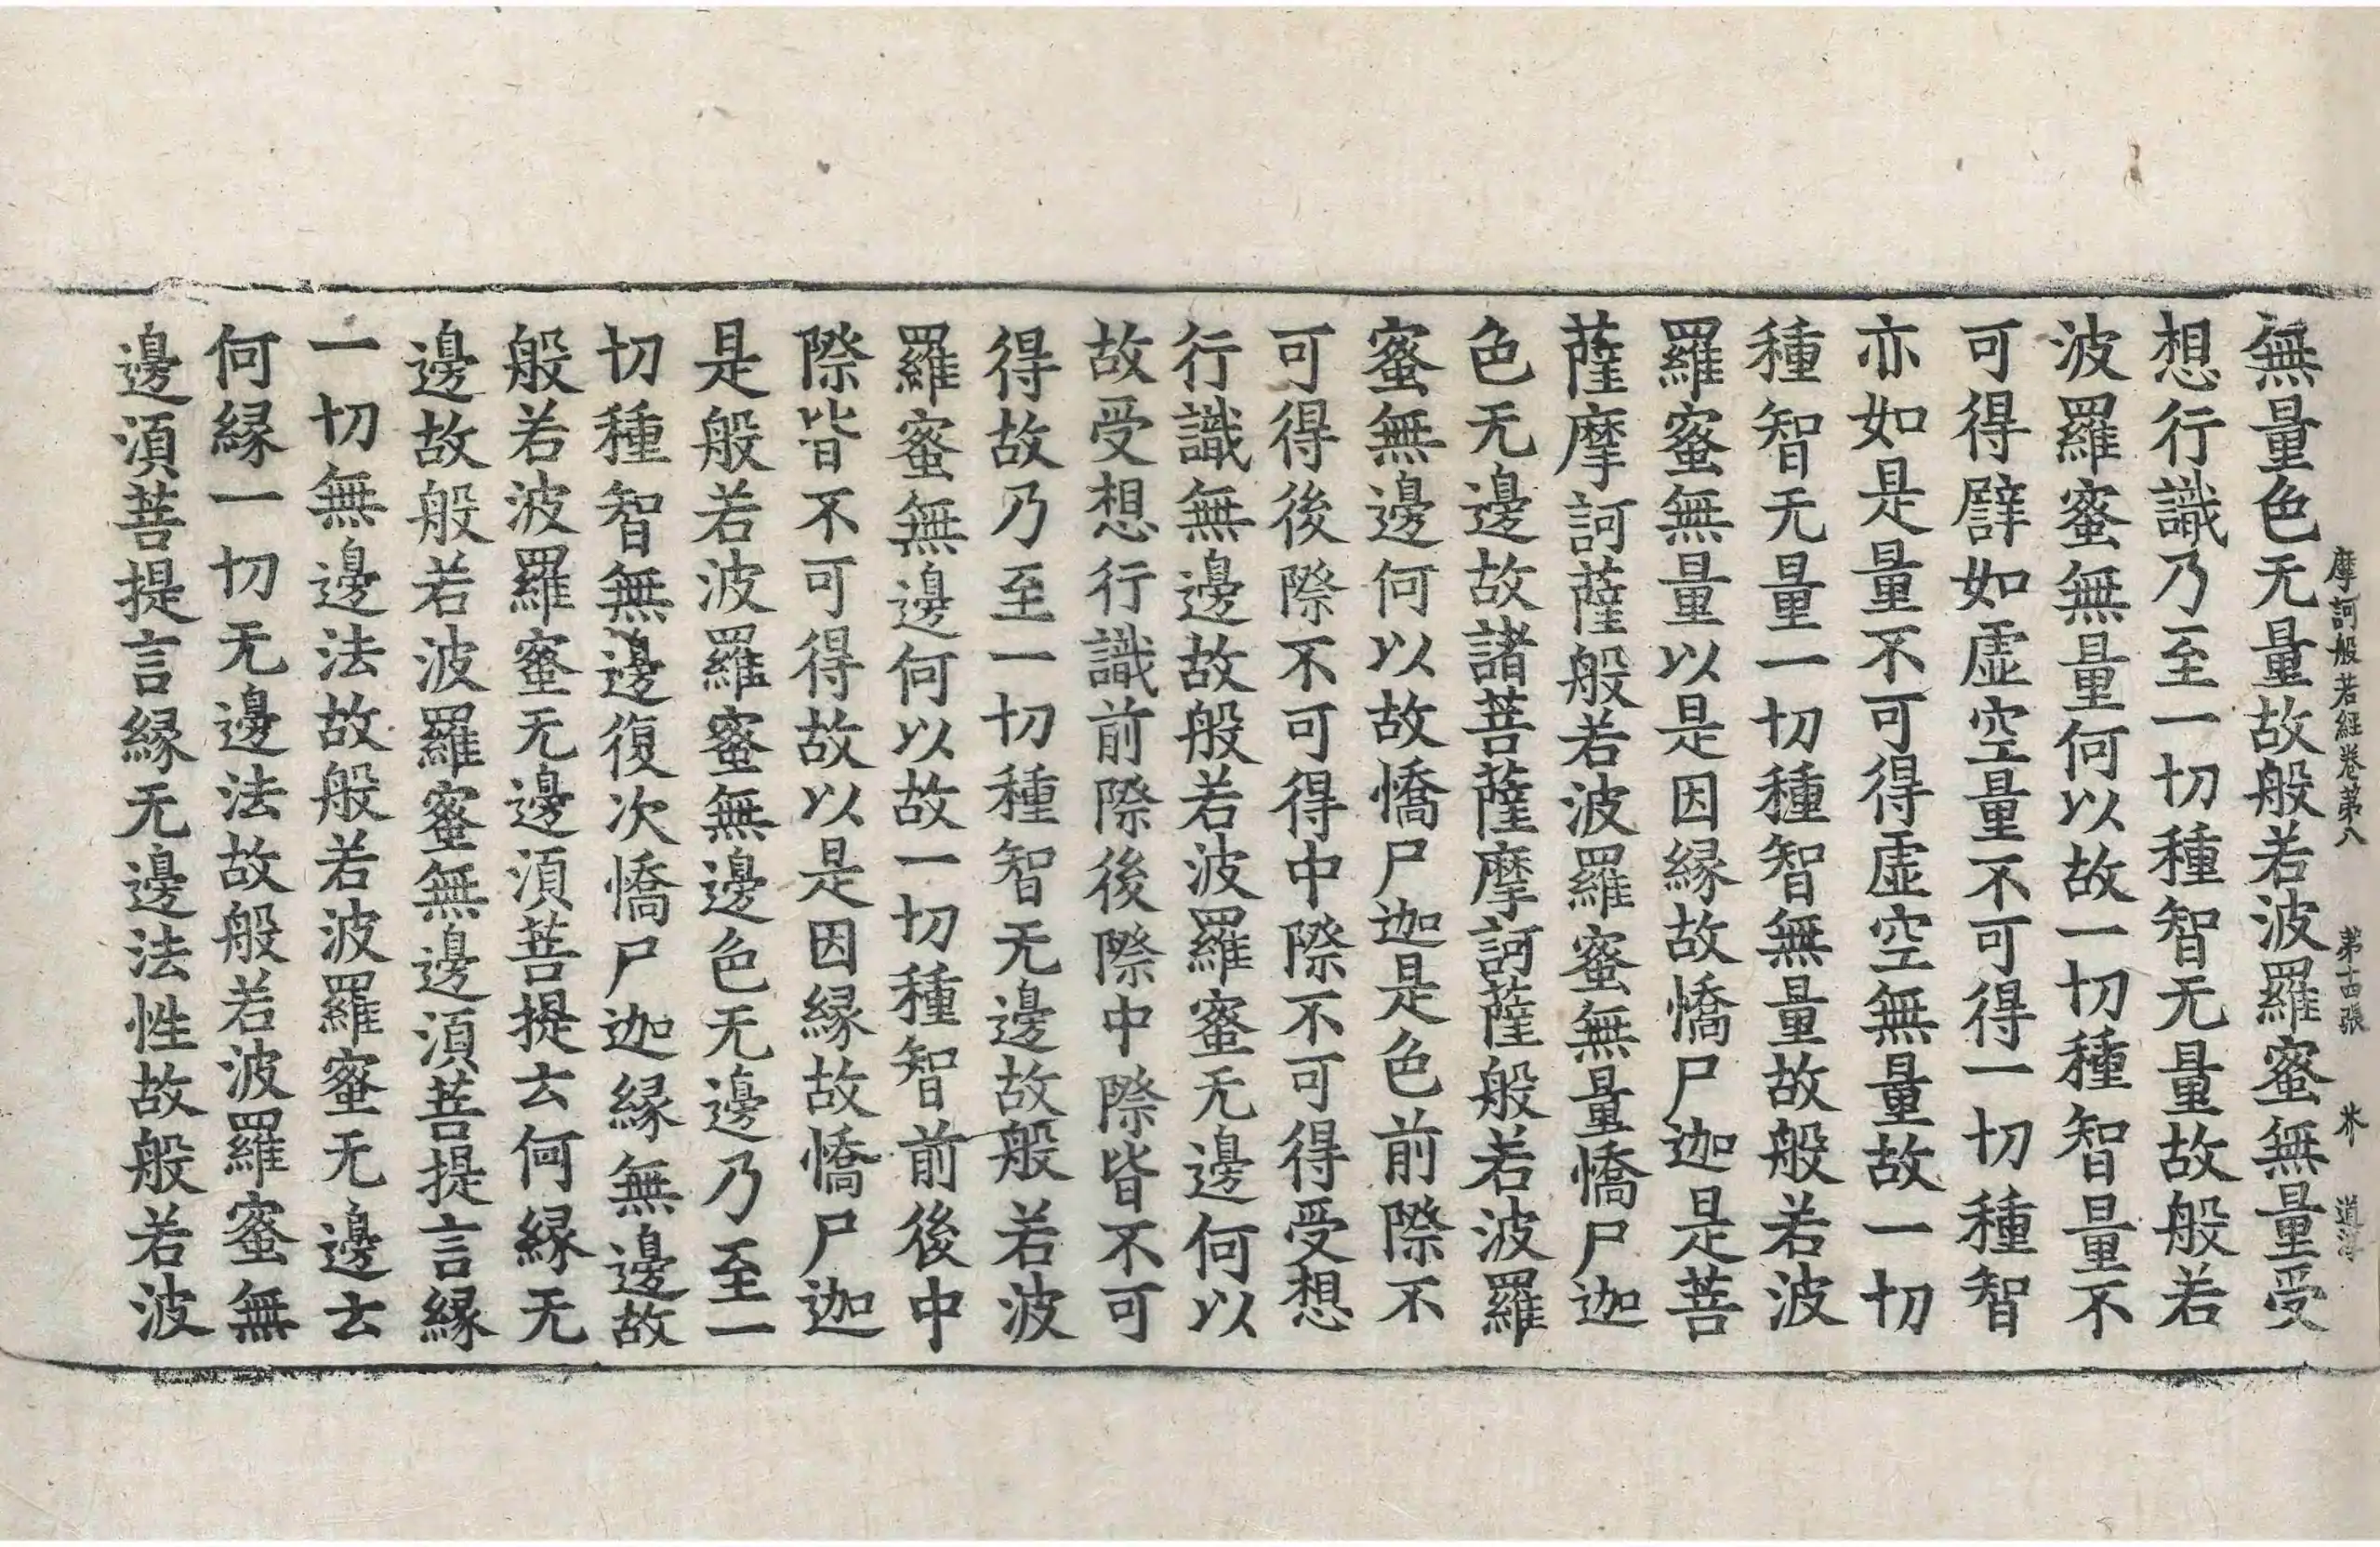 摩訶般若經卷第八 第十四張 米
無量色无量故般若波羅蜜無量受
想行識乃至一切種智无量故般若
波羅蜜無量何以故一切種智量不
可得譬如虛空量不可得一切種智
亦如是量不可得虛空無量故一切
種智无量一切種智無量故般若波
羅蜜無量以是因縁故憍尸迦是菩
薩摩訶薩般若波羅蜜無量憍尸迦
色无邊故諸菩薩摩訶薩般若波羅
蜜無邊何以故憍尸迦是色前際不
可得後際不可得中際不可得受想
行識無邊故般若波羅蜜无邊何以
故受想行識前際後際中際皆不可
得故乃至一切種智无邊故般若波
羅蜜無邊何以故一切種智前後中
際皆不可得故以是因縁故憍尸迦
是般若波羅蜜無邊色无邊乃至一
切種智無邊復次憍尸迦縁無邊故
般若波羅蜜无邊湏菩提云何縁无
邊故般若波羅蜜無邊湏菩提言縁
一切無邊法故般若波羅蜜无邊云
何縁一切无邊法故般若波羅蜜無
邊湏菩提言縁无邊法性故般若波